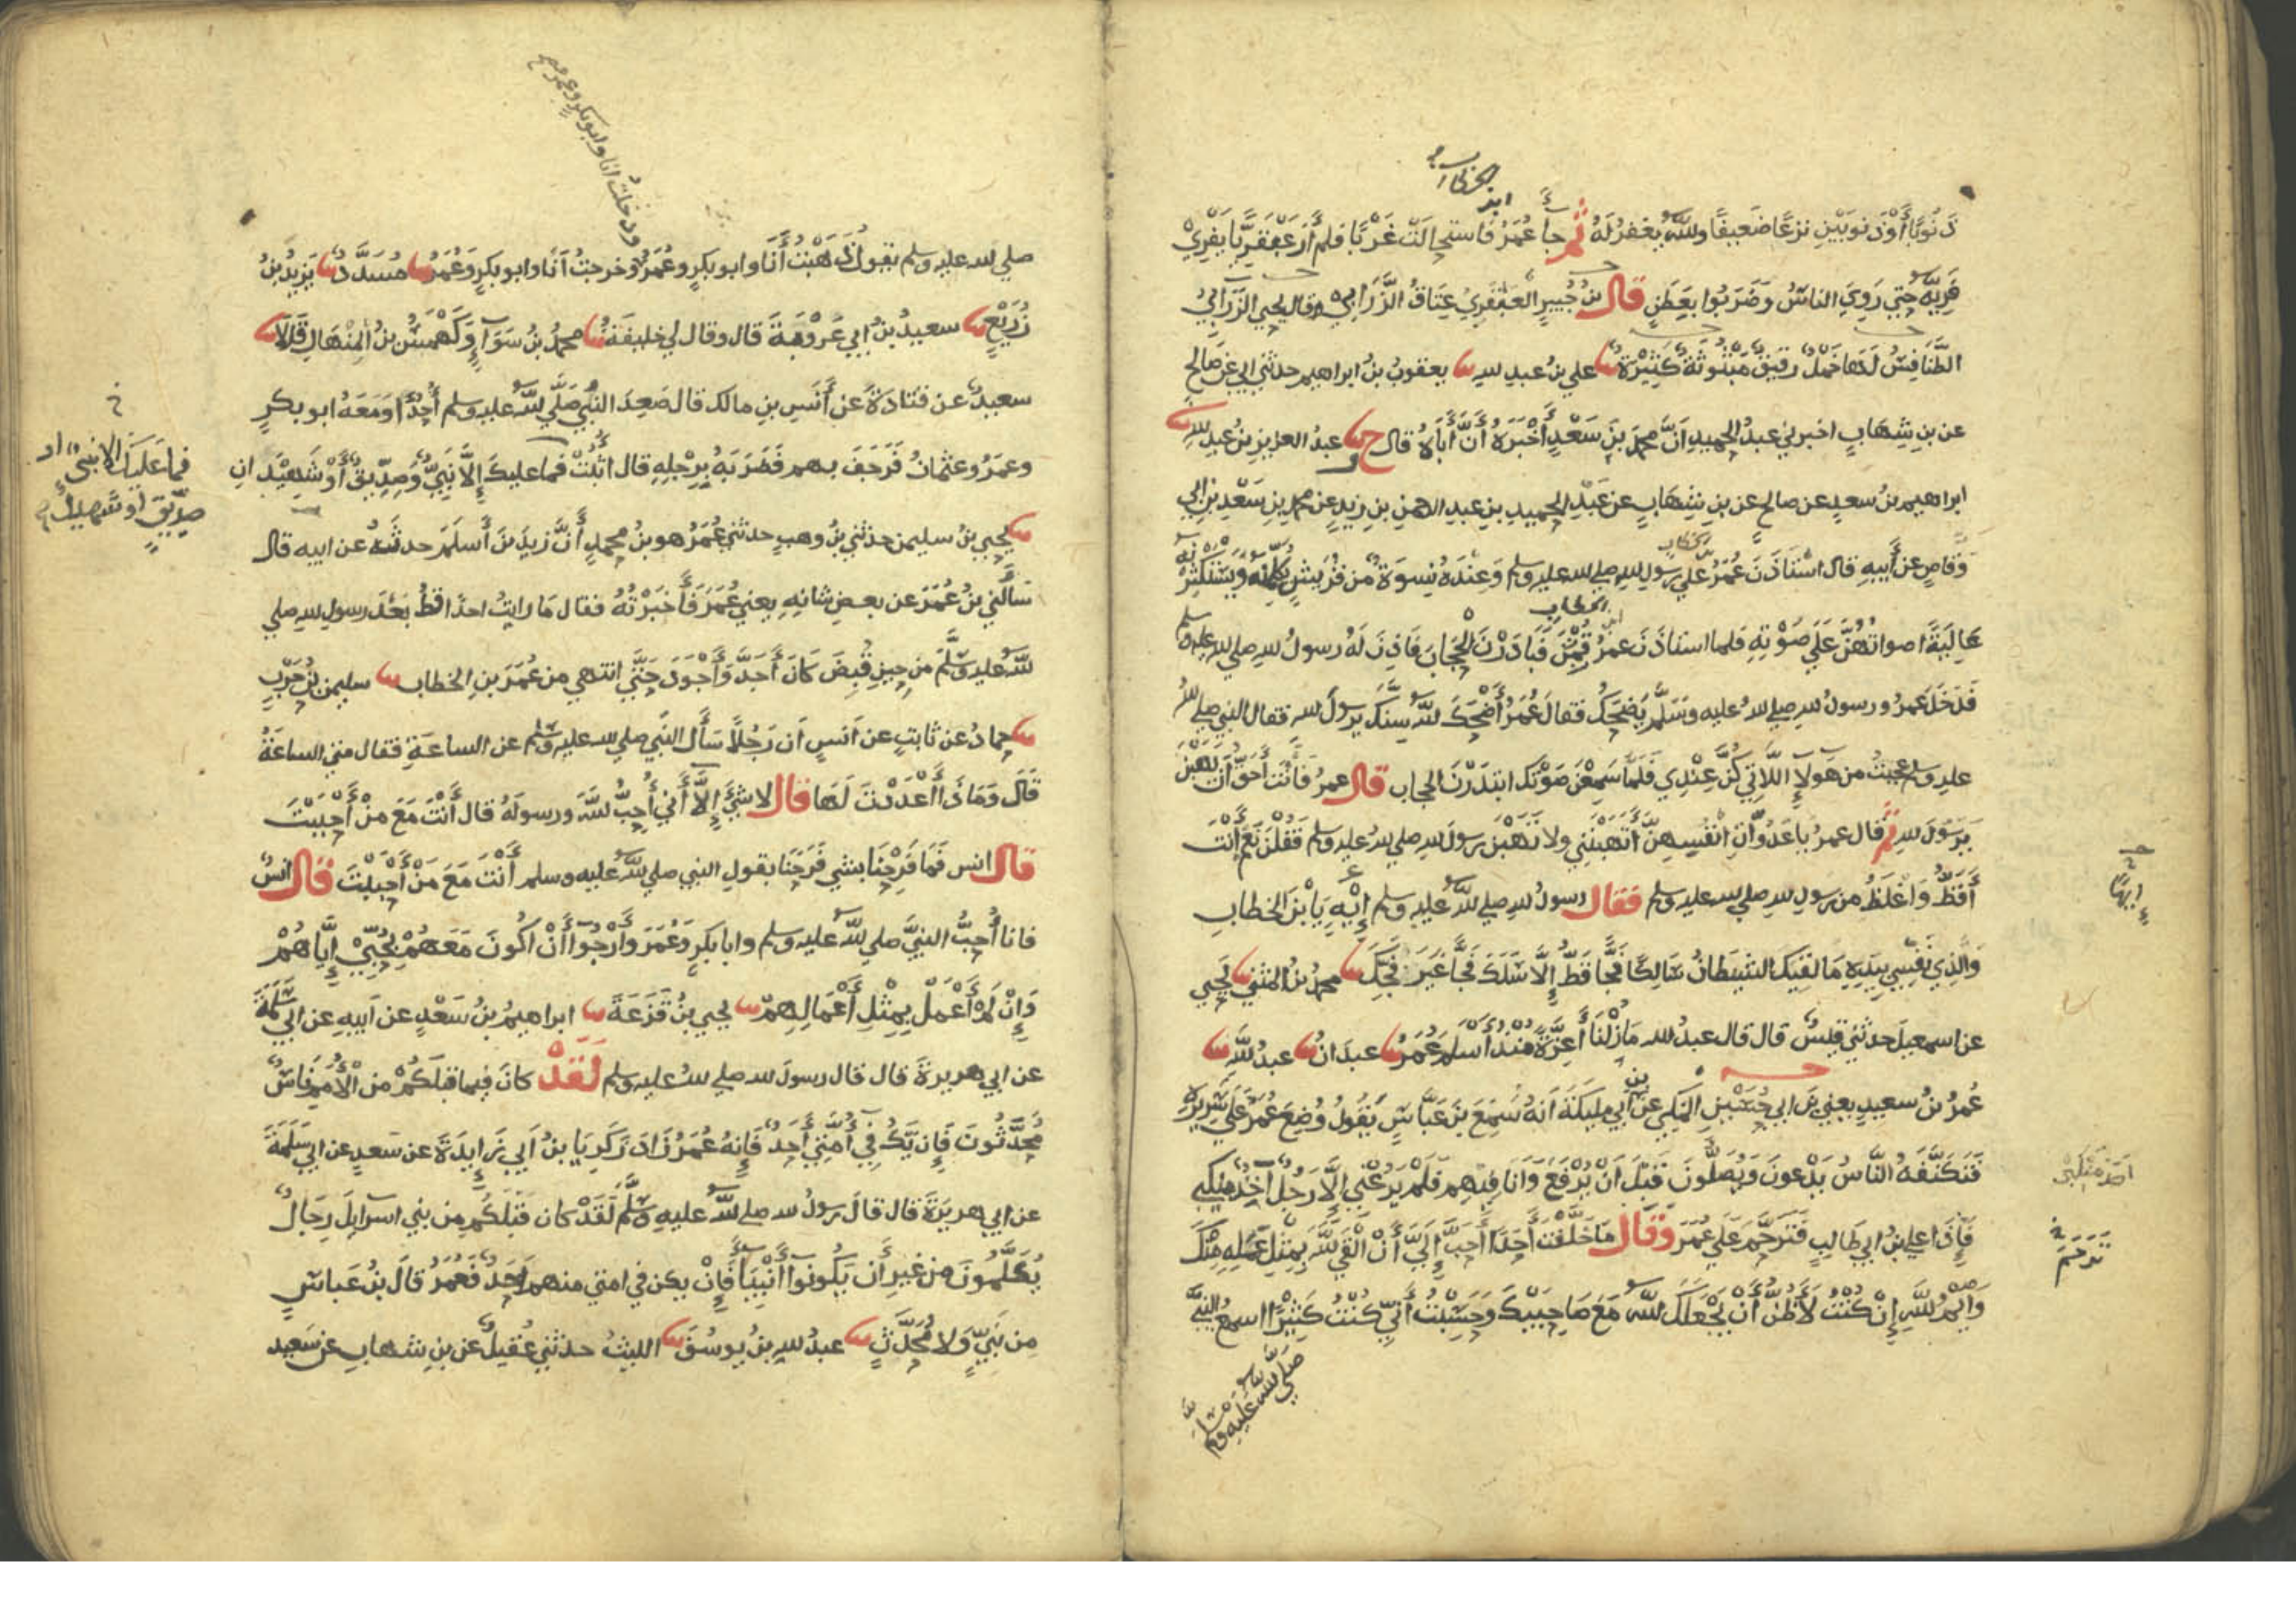 بن
الخطاب
ذَنُوبًا أَوْ ذَنوبَيْنِ نزعًا ضَعيفًا والله يغفرُ لَهُ ثم جا عُمَرُ فاستحالَتْ غَرْبًا فلم أَرَ عَبْقَرِيًّا يَفْرِيْ
فَرِيَّهُ حتي رَوِيَ الناسُ وَضَرَبُوا بعَطَنٍ قال بنُ جُبَيرٍ العَبْقَرِيُ عِتَاقُ الزَّرَابِيِّ وقال يحيي الزَرَابيُّ
الطَّنَافِسُ لَهَا خَمْلٌ رقيقٌ مَبْثُوثَةٌ كَثِيْرَةٌ علي بنُ عبدِ اللهِ يعقوبُ بنُ ابراهيم حدثني ابي عن صَالحٍ
عن بنِ شِهَابٍ اخبرني عبدُ الحميدِ انَّ محمدَ بنَ سَعْدٍ أَخْبَرَهُ أَنَّ أَبَاهُ قال ح و عبدُ العزيزِ بنُ عبدِ اللهِ
ابراهيم بنُ سعيدٍ عن صالحٍ عن بنِ شِهَابٍ عن عَبْدِ الحميدِ بنِ عبدِ الرحمنِ بنِ زيدٍ عن محمدِ بنِ سَعْدِ بنِ ابي
وَقاصٍ عن أَبيهِ قال استاذَنَ عُمَرُ علي رسولِ اللهِ صلي الله عليه وسلم وَعِنْدَهُ نِسوَةٌ من قُرَيشٍ يُكَلِّمْنَهُ وَيَسْتَكْثِرْنَهُ
الخطاب
عَالِيَةً اصواتُهُنَّ عَلَي صَوْتِهِ فلما استاذَنَ عمرُ قُمْنَ فَبَادَرْنَ الْحِجَابَ فَاذِنَ لَهُ رسولُ اللهِ صلي الله عليه وسلم
فَدَخَلَ عمرُ ورسولُ اللهِ صلي اللهُ عليه وَسَلَّمَ يَضْحَكُ فقالَ عُمَرُ أَضْحَكَ اللهُ سِنَّكَ يرسولَ اللهِ فقال النبي صلي اللهُ
عليه وسلم عجبتُ من هولا اللَّاتِي كُنَّ عِنْدِي فَلَمَّا سَمِعْنَ صَوْتَكَ ابتدَرْنَ الحجاب قال عمرُ فَأَنْتَ أَحَقُّ أَنْ يَهَبْنَ
يرَسُولَ اللهِ ثم قال عمرُ ياعَدُوَّاتِ انْفُسِهِنَّ أَتَهَبْنَنِي ولا تَهَبْنَ رسولَ اللهِ صلي اللهُ عليه وسلم فَقُلْنَ نَعَم أَنْتَ
أَفَظُّ وَأَغْلَظُ من رسولِ اللهِ صلي الله عليه وسلم فقال رسولُ اللهِ صلي اللهُ عليه وسلم إِيْهٍ يَا بْنَ الخطابِ
إيهًا
وَالَّذِي نَفْسِي بِيَدِهِ مَا لقيَكَ الشيطانُ سَالِكًا فَجًّا قَطُّ إِلَّا سَلَكَ فَجًّا غَيرَ فَجِّكَ محمدُ بنُ المثني يحيي
عن اسمعيلَ حدثني قيسٌ قال قال عبدُ الله مَا زِلْنَا أَعِزَّةً مُنْذُ أَسْلَمَ عُمَرُ عبدَانُ عبدُ اللهِ
عُمَرُ بنُ سعيدٍ يعني بنَ ابي حُسَيْنٍ المكي عن بن أَبي مليكَةَ انهُ سَمِعَ بنَ عَبَّاسٍ يَقُولُ وُضِعَ عُمَرُ عَلَي سَرِيرِهِ
فَتَكَنَّفَهُ النَّاسُ يَدْعونَ وَيُصَلُّونَ قَبْلَ انْ يُرْفَعَ وَانَا فِيْهِم فلَمْ يَرُعْنِي إِلَّا رَجُلٌ آخِذٌ مَنْكِبي
أخذ مَنْكبي
فَإِذَا علي بنُ ابي طالِبٍ فَتَرَحَّمَ عَلَي عُمَرَ وَقَال مَا خَلَّفْتَ أَحَدًا أَحَبَّ إِلَيَّ أَنْ أَلْقَي اللهَ بِمِثْلِ عَمَلِهِ مِنْكَ
تَرَحَّمَ
وَايْمُ اللهِ إِنْ كُنْتُ لَأَظُنُّ أَنْ يَجْعَلَكَ اللهُ مَعَ صَاحِبَيْكَ وَحَسِبْتُ أَنِّي كُنْتُ كَثِيْرًا اسمعُ النبيَّ
صَلَّي اللهُ عَلَيه وَسَلَّم
ودخلتُ انا وابو بكرٍ وعمرُ صح
صلي الله عليه وسلم يقول ذَهَبْتُ أَنَا وابو بكرٍ وعُمَرُ وخرجتُ أَنَا وابو بكرٍ وَعُمَرُ مُسَدَّدٌ يَزِيدُ بنُ
زُرَيْعٍ سعيدُ بنُ ابي عَرُوْبَةَ قال وقال لي خليفةُ محمدُ بنُ سَوَآءٍ وَكَهْمَسُ بنُ المِنْهَالِ قَالَا
سعيدٌ عن قتادةَ عن أَنَسِ بنِ مالك قال صَعِدَ النبيُّ صَلَّي اللهُ عليه وسلم أُحُدًا وَمَعَهُ ابو بكرٍ
وعمَرُ وعثمانُ فَرَجَفَ بهم فَضَرَبَهُ بِرِجْلِهِ قال اثْبُتْ فما عليكَ إِلَّا نَبِيٌّ وَصِدِّيقٌ أَوْ شَهِيْدَانِ
فما عَلَيْكَ الا نبيٌّ او
صِدِّيقٌ او شهيدٌ
يَحْيي بنُ سليمن حدثني بنُ وهبٍ حدثني عُمَرُ هو بنُ محمدٍ أَنَّ زيدَ بنَ أَسلَمَ حدثَهُ عن ابيه قال
سَأَلَني بنُ عُمَرَ عن بعضِ شانِهِ يعني عُمَرَ فَأَخبَرْتُهُ فقال مَا رايتُ احدًا قطُّ بَعْدَ رسولِ اللهِ صلي
اللهُ عليه وَسَلَّمَ من حِينِ قُبِضَ كَانَ أَجَدَّ وَأَجْوَدَ حَتَّي انتهي من عُمَرَ بنِ الخطاب سليمن بنُ حَرْبٍ
حمادٌ عن ثابتٍ عن أَنَسٍ ان رَجُلًا سَأَلَ النَّبي صلي الله عليه وسلم عن الساعَةِ فقال متي الساعَةُ
قَالَ وَمَاذَا أَعْدَدْتَ لَهَا قال لا شَيْءَ إِلَّا أَنِّي أُحِبُّ اللهَ ورسولَهُ قال أَنْتَ مَعَ مَنْ أَحْبَبْتَ
قال انس فَمَا فَرِحْنَا بشيءٍ فَرَحَنَا بقولِ النبي صلي اللهُ عليه وسلم أَنْتَ مَعَ مَنْ أَحْبَبْتَ قال انسٌ
فانا أُحِبُّ النبيَّ صلي اللهُ عليه وسلم وابا بكرٍ وَعُمَرَ وَأَرْجُوا أَنْ اكُونَ مَعَهُمْ بِحُبِّيْ إِيَّاهُمْ
وَإِنْ لَمْ أَعْمَلْ بِمِثْلِ أَعْمَالِهِمْ يحيي بنُ قَزَعَةَ ابراهيمُ بنُ سَعْدٍ عن أَبيهِ عن ابي سَلَمَةَ
عن ابي هريرةَ قال قال رسولُ الله صلي اللهُ عليه وسلم لَقَدْ كانَ فيما قبلَكُمْ من الْأُمَمِ نَاسٌ
مُحَدَّثُونَ فَإِن يَكُ فِي أُمَّتِي أَحَدٌ فَإِنهُ عُمَرُ زَادَ زَكَرِيَا بنُ أَبي زَآئِدَةَ عن سَعدٍ عن ابي سَلَمَةَ
عن ابي هريَرَةَ قال قالَ رسولُ الله صلي اللهُ عليه وسَلَّمَ لَقَدْ كان قَبْلَكُم مِن بَني اسرايلَ رِجَالٌ
يُكَلَّمُونَ من غيرِ أَن يَكُونوا أَنْبِيَآءَ فَإِنْ يكن في امتي منهم احَدٌ فَعُمَرُ قالَ بنُ عَباسٍ
مِن نَبِيٍّ وَلا مُحَدَّثٍ عبدُ اللهِ بنُ يوسُفَ الليثُ حدثني عُقَيلٌ عن بنِ شهابٍ عن سَعيد